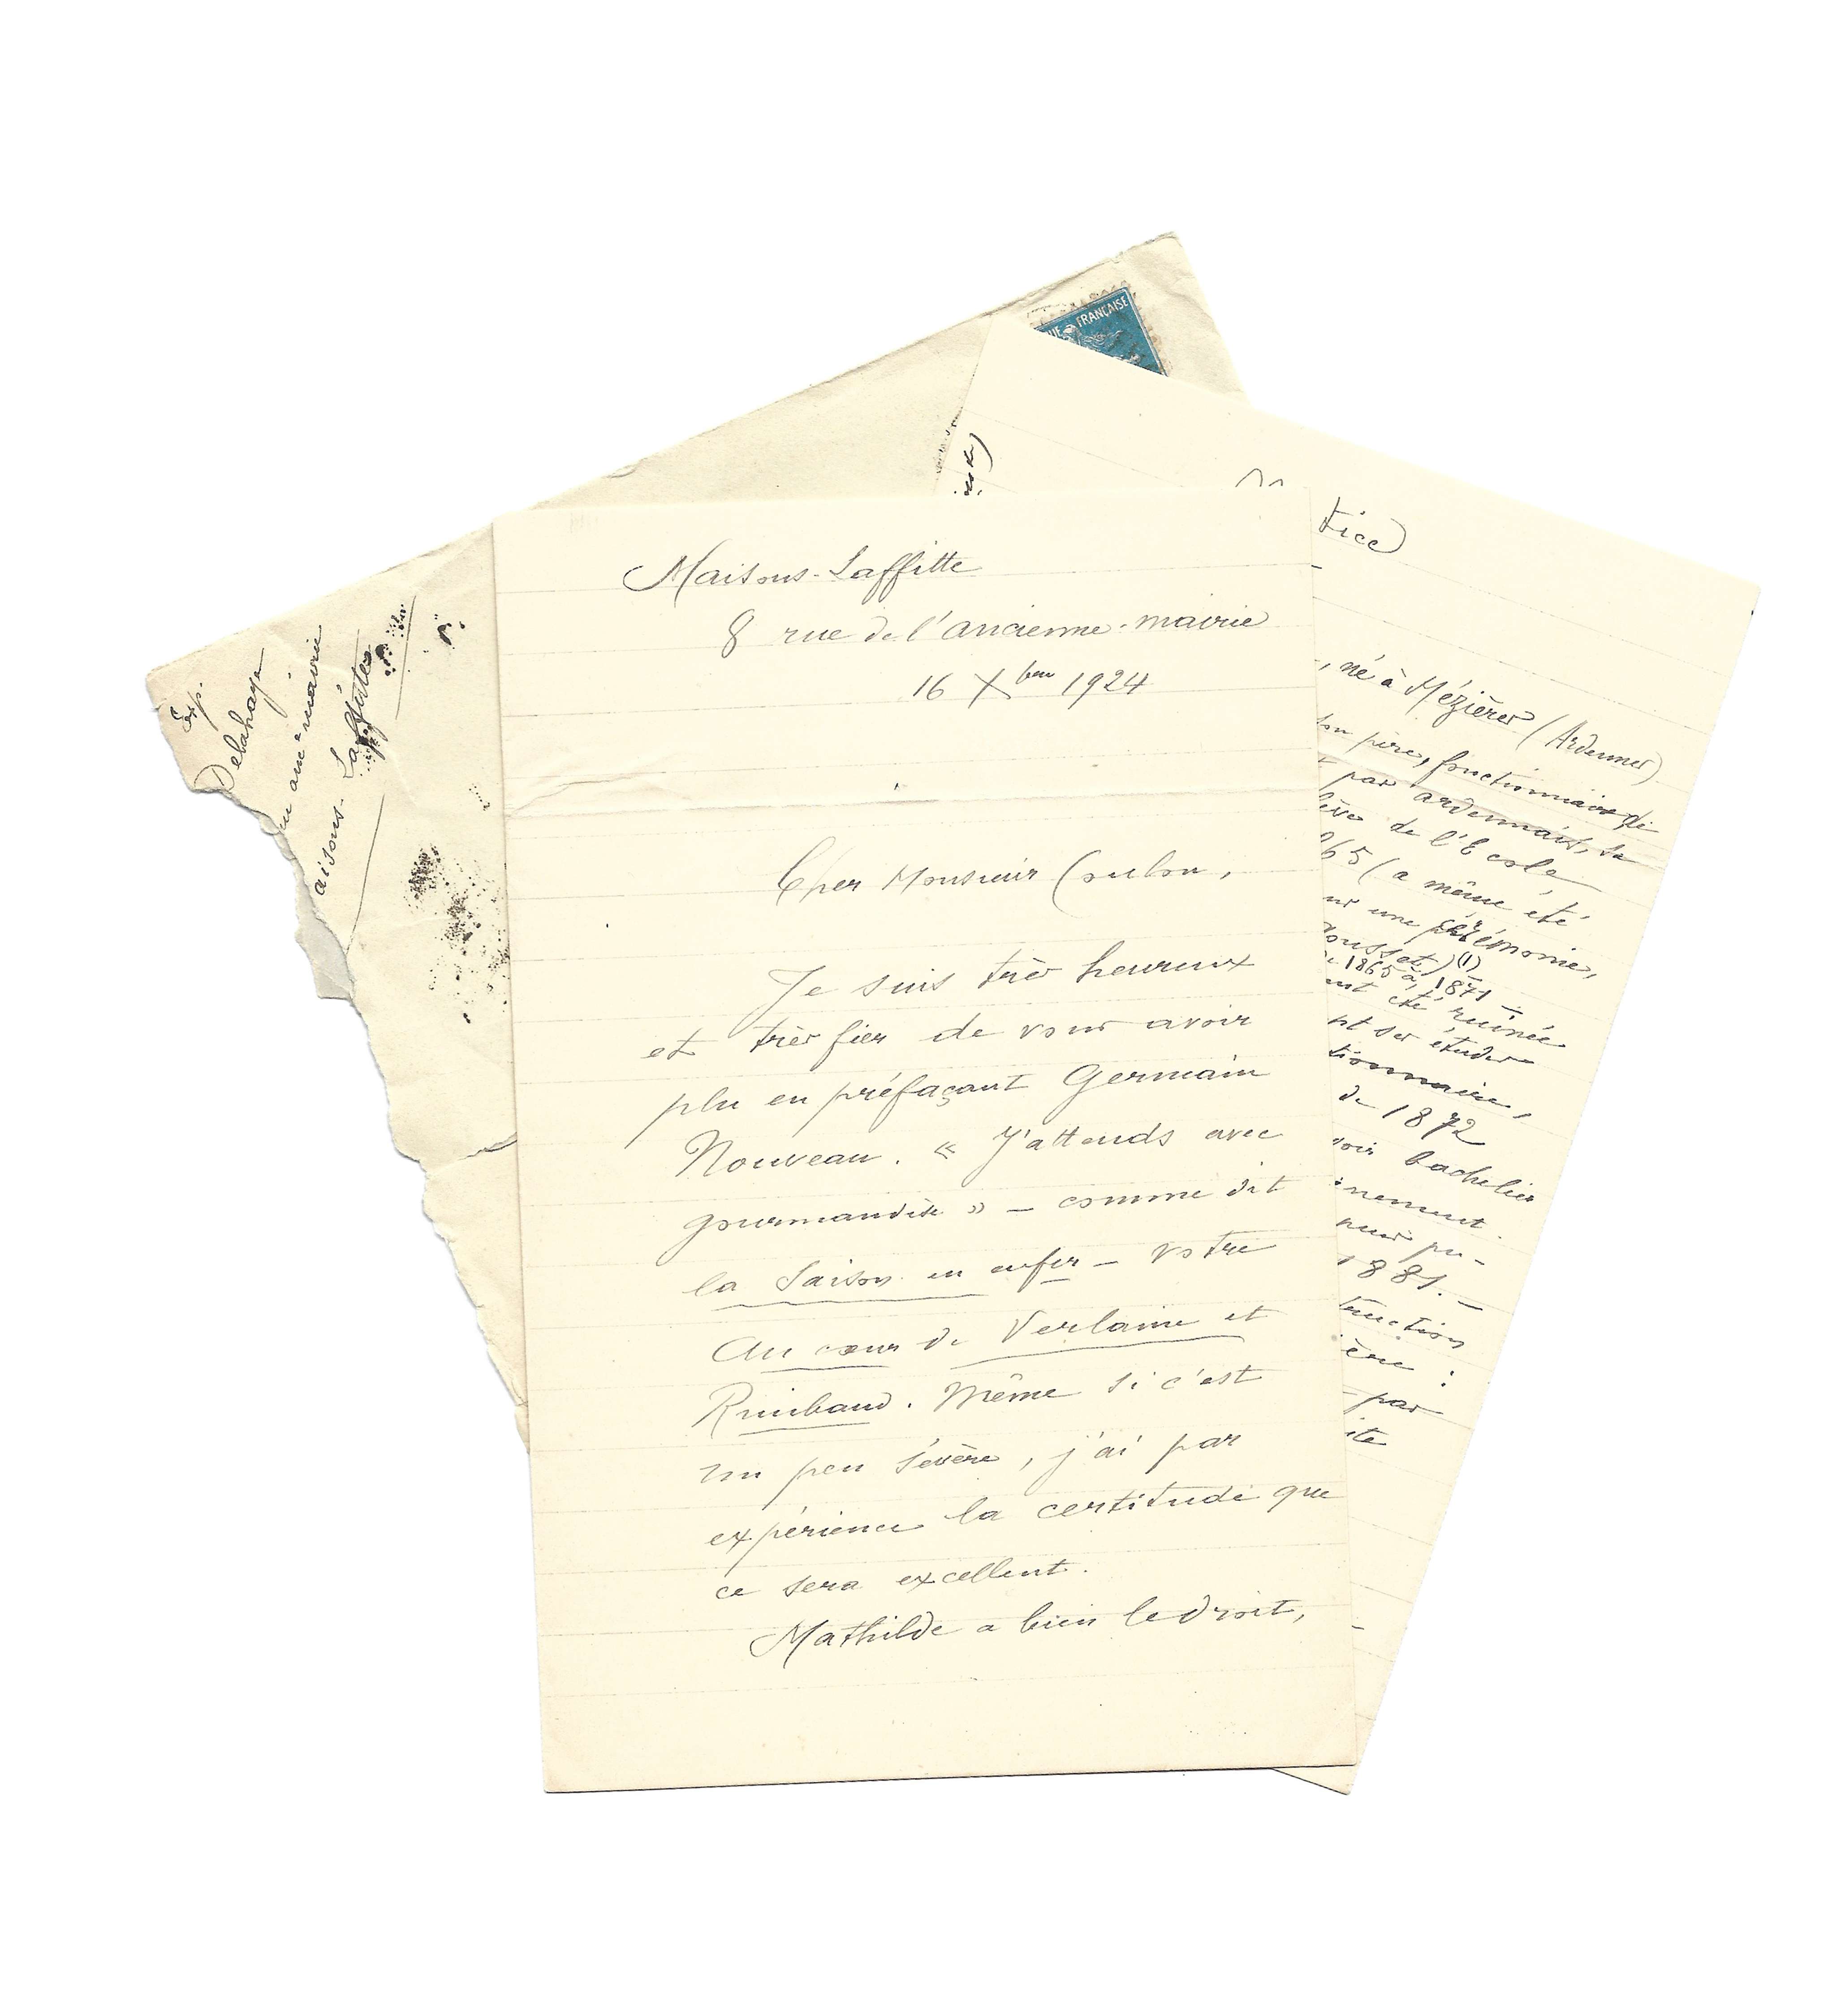 Maisons-Laffitte
8 rue de l'ancienne-mairie
16 Xbre 1924
Cher Monsieur Coulon,
Je suis très heureux
et très fier de vous avoir
plu en préfaçant Germain
Nouveau. « J'attends avec
gourmandise » – comme dit
la Saison en enfer – votre
Au cœur de Verlaine et
Rimbaud. Même si c'est
un peu sévère, j'ai par
expérience la certitude que
ce sera excellent.
Mathilde a bien le droit,
Exp.
Delahaye
anc° mairie
aisons-Laffitte
UE FRANÇAISE
tice
, né à Mézières (Ardennes)
son père, fonctionnaire de
par ardennais, sa
de l'École
65 (a même été
une cérémonie,
ousset) (1)
1865 à 1871 –
été ruinée
ses études
tionnaire,
de 1872
voir bachelier
nement
pu-
1881. –
truction
ère :
– par
ite